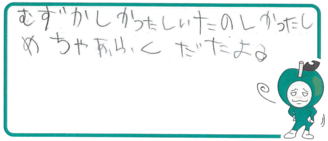 むずかしかったしいたのしかったし
めちゃあらくだたよる